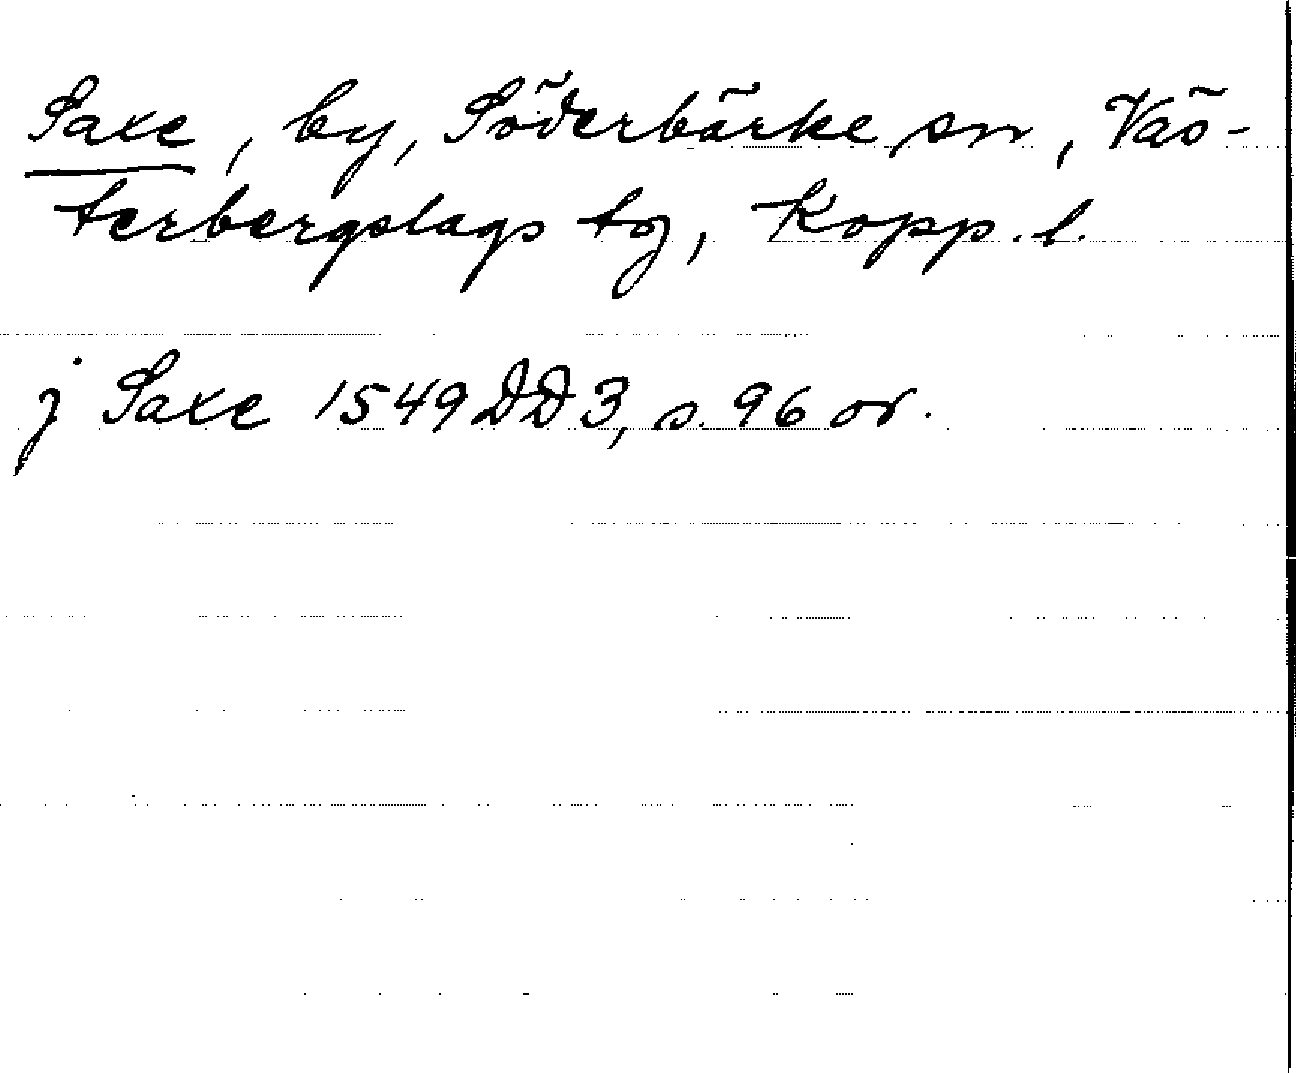 Saxe, by, Söderbärke sn, Väs-
terbergslags tg, Kopp. l.
j Saxe 1549 DD 3, s. 96 or.